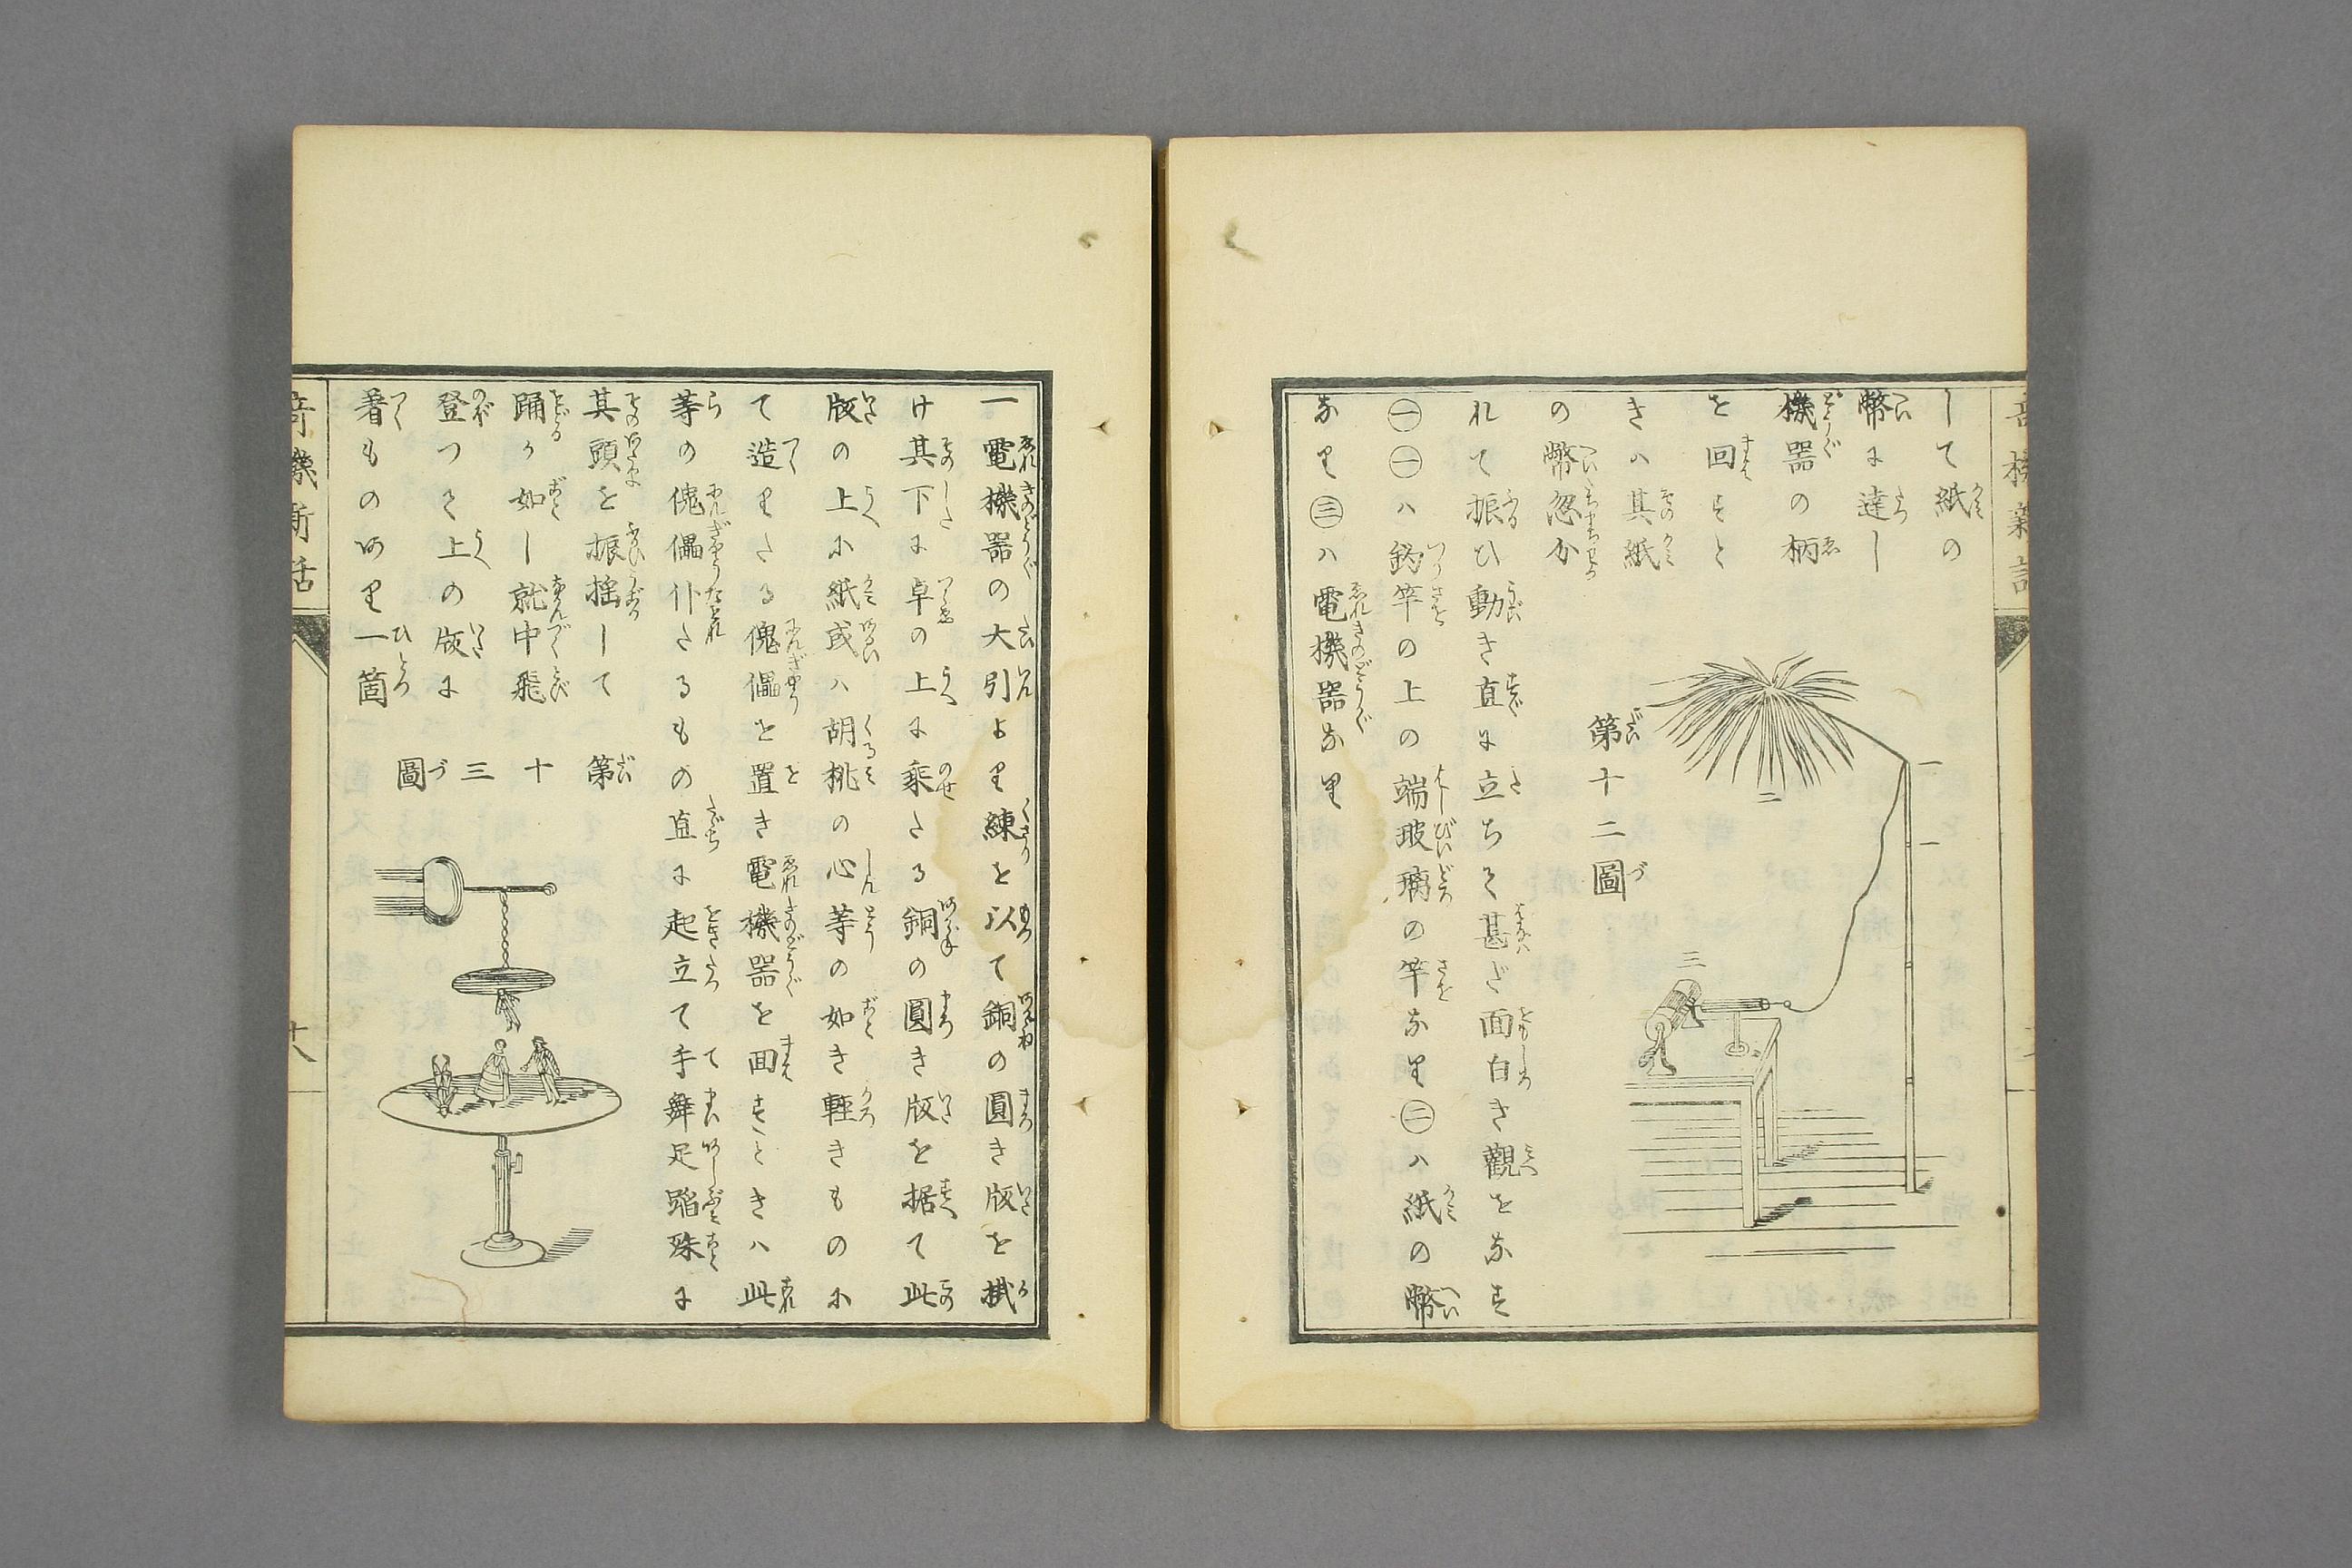 奇機新話
して紙の
幣に達し
機器の柄
を回すと
きハ其紙
の幣忽分
れて振ひ動き直に立ちて甚だ面白き觀をなす
㊀㊀ハ釣竿の上の端玻璃の竿なり㊁ハ紙の幣
なり㊂ハ電機器なり
第十二圖
一
一
二
三
一電機器の大引より練を以て銅の圓き版を掛
け其下に卓の上に乗たる銅の圓き版を据て此
版の上に紙或ハ胡桃の心等の如き輕きものに
て造りたる傀儡を置き電機器を面すときハ此
等の傀儡仆たるもの直に起立て手舞足蹈殊に
其頭を振揺して
踊か如し就中飛
登つて上の版に
着ものあり一箇
第十三圖
奇機新話
十八